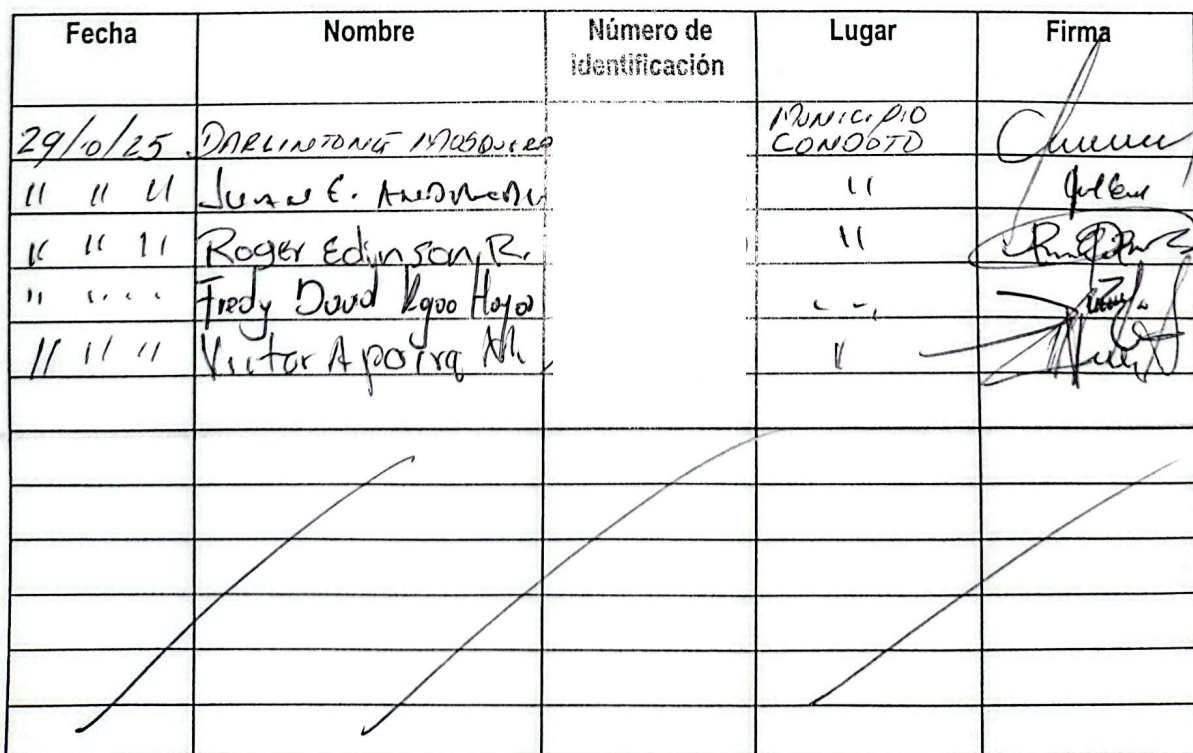 Fecha Nombre Número de identificación Lugar Firma
29/10/25 DARLINTONE MOSQUERA MUNICIPIO CONDOTO
" " " Juan E. "
" " " Roger Edinson R. "
" " " " Fredy David Hoyos " "
" " " Victor M. "